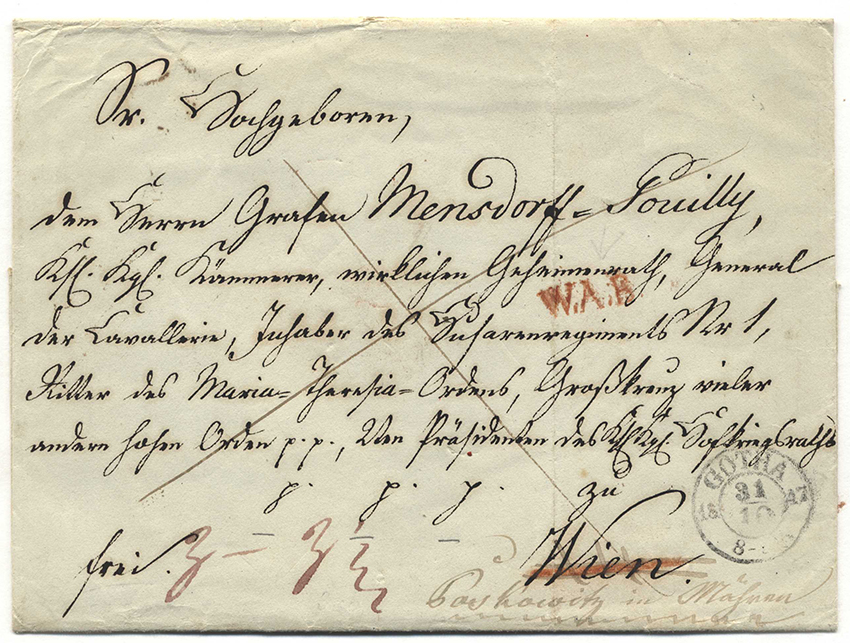 Sr. Hochgeboren,
dem Herrn Grafen Mensdorff=Pouilly,
Ksl. Kgl. Kämmerer, wirklichen Geheimenrath, General
der Cavallerie, Inhaber des Husarenregiments Nr 1,
W.A.B
Ritter des Maria=Theresia=Ordens, Großkreuz vieler
andern hohen Orden p. p., 2ten Präsidenten des Ksl Kgl. Hofkriegsraths
p. p. p. zu
GOTHA
31
10
18 47
8-
frei.
Wien.
Boskowitz in Mähren